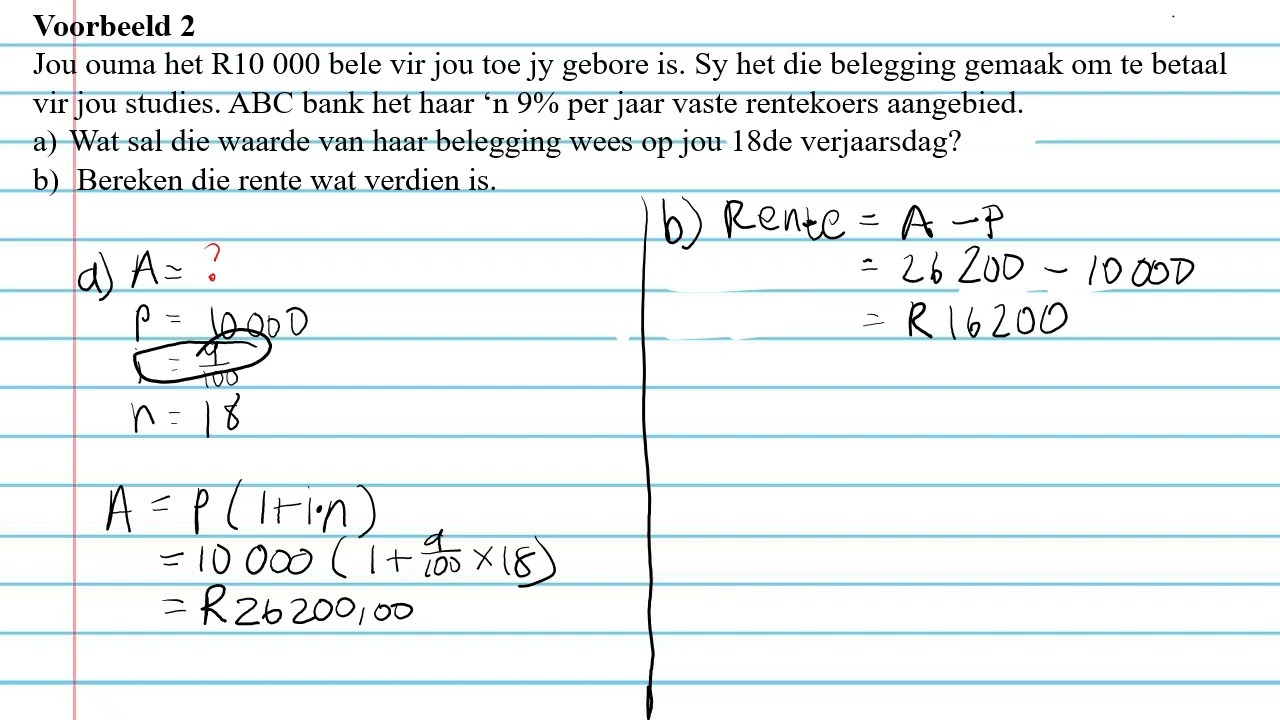 Voorbeeld 2
Jou ouma het R10 000 bele vir jou toe jy gebore is. Sy het die belegging gemaak om te betaal
vir jou studies. ABC bank het haar ‘n 9% per jaar vaste rentekoers aangebied.
a) Wat sal die waarde van haar belegging wees op jou 18de verjaarsdag?
b) Bereken die rente wat verdien is.
a) A = ?
P = 10000
= 9/100
n = 18
A = P(1+i·n)
= 10 000 (1 + 9/100 × 18)
= R26200,00
b) Rente = A - P
= 26 200 - 10 000
= R16200